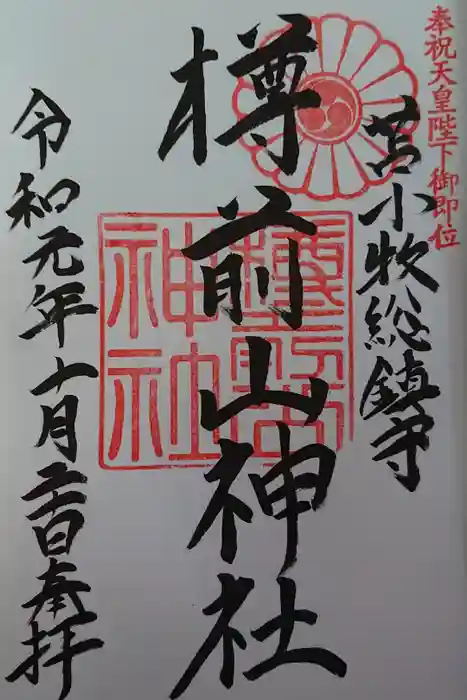 奉祝天皇陛下御即位
苫小牧総鎮守
樽前山神社
樽前山神社
令和元年十月二日奉拝